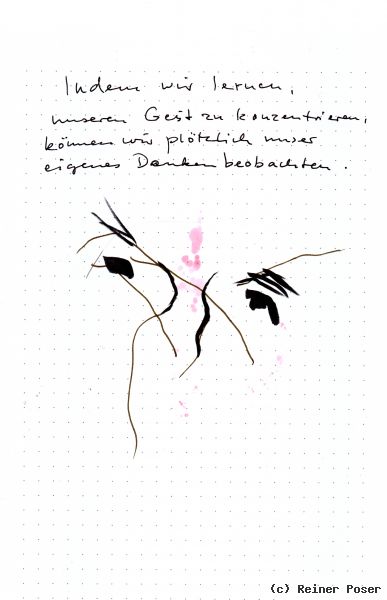 Indem wir lernen,
unseren Geist zu konzentrieren,
können wir plötzlich unser
eigenes Denken beobachten.
(c) Reiner Poser